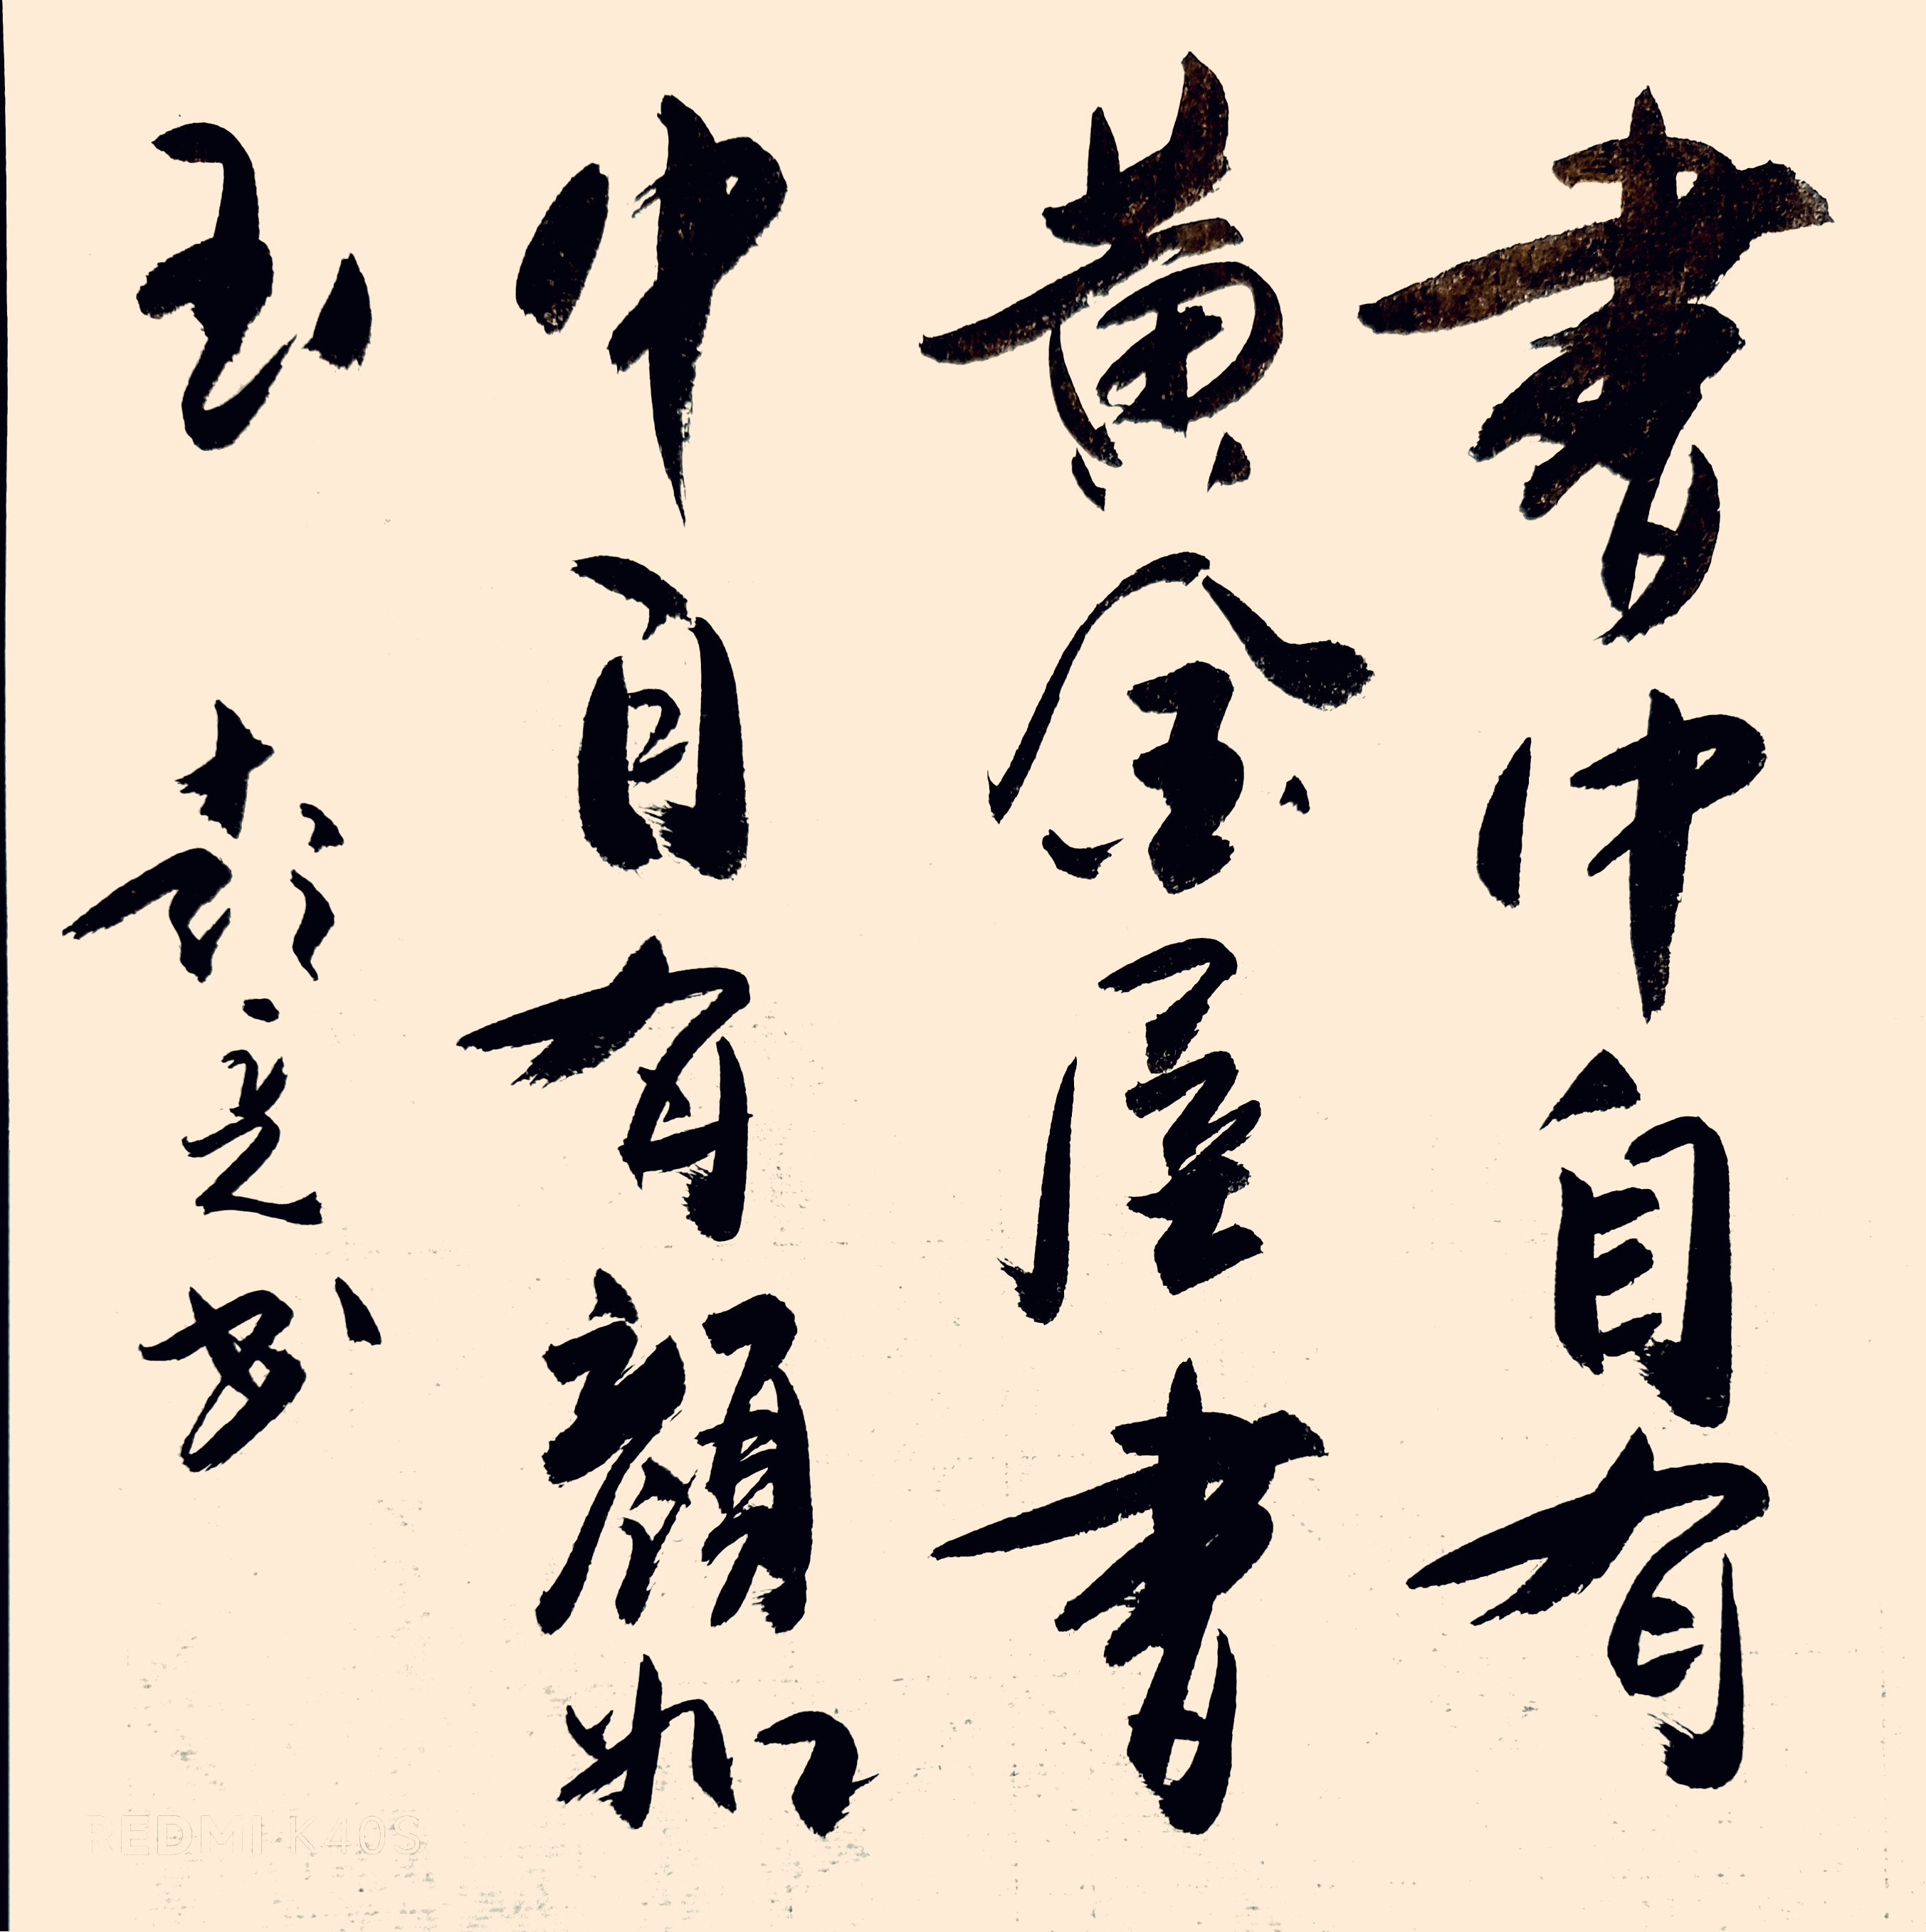 書中自有
黄金屋書
中自有顔如
玉 志书
REDMI K40S